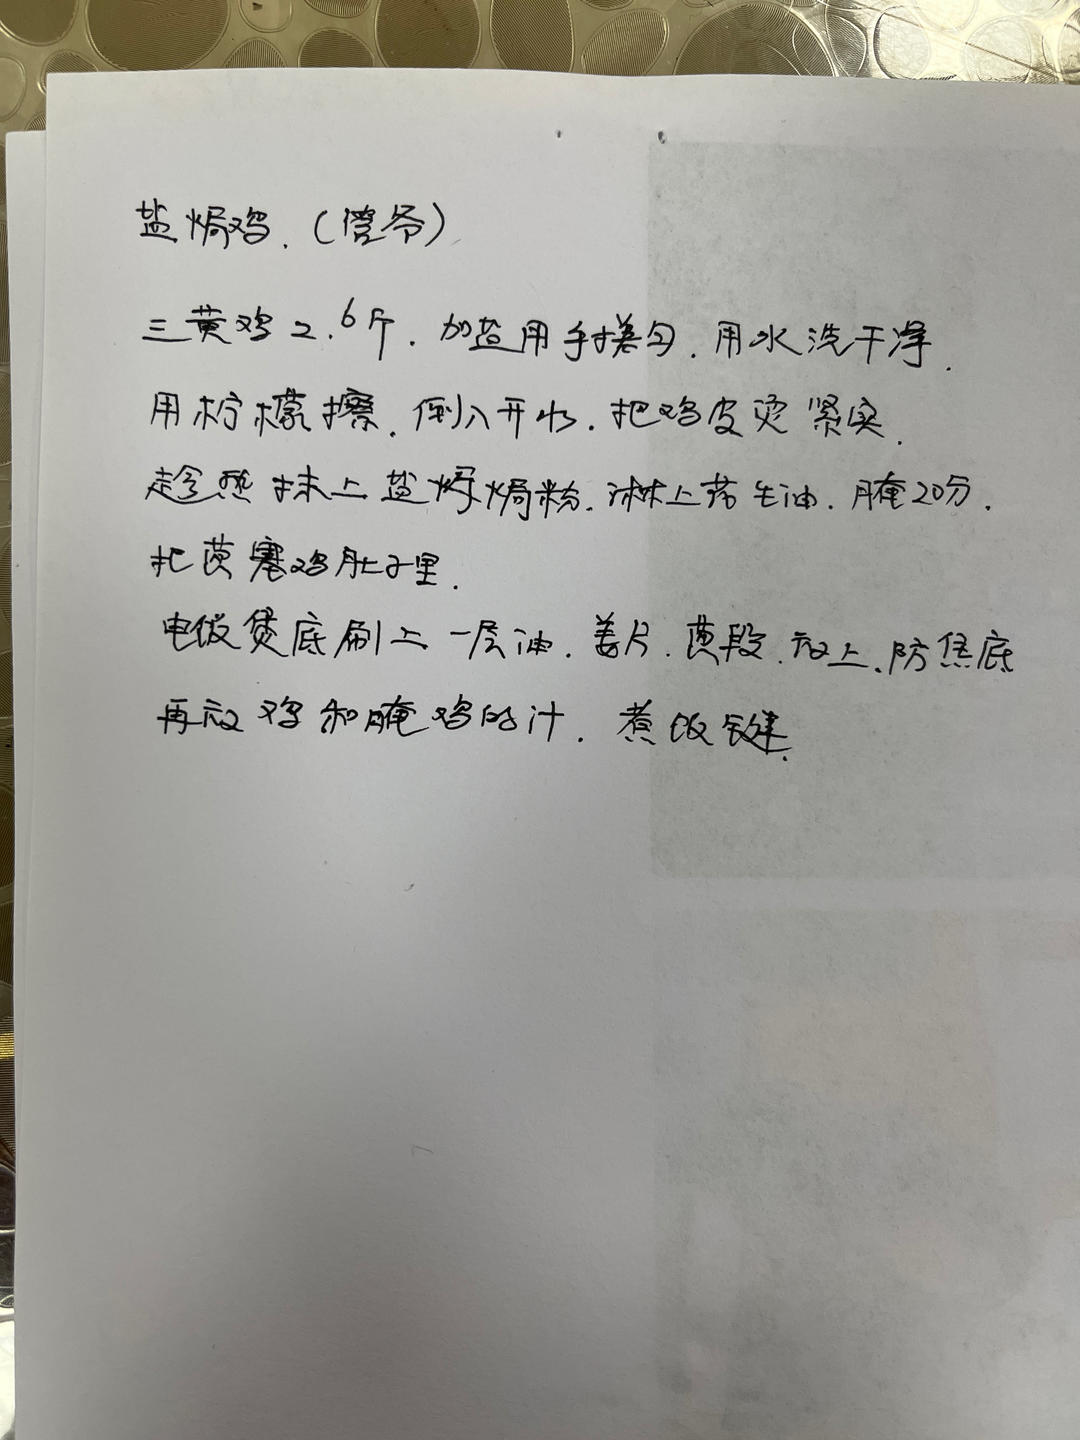 盐焗鸡.（僚爷）
三黄鸡2.6斤.加盐用手搓匀.用水洗干净.
用柠檬擦.倒入开水.把鸡皮烫紧实.
趁热抹上盐焗粉.淋上花生油.腌20分.
把葱塞鸡肚子里.
电饭煲底刷上一层油.姜片.葱段.放上.防焦底
再放鸡和腌鸡的汁.煮饭键.